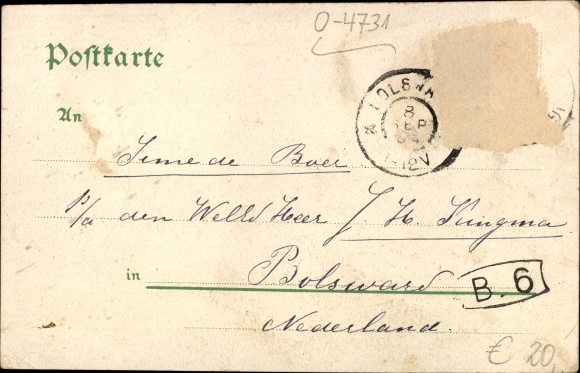 0-4731
Postkarte
BOLSWA
8
SEP
12V
An
de Boer
p/a den Weled Heer J. H. Kingma
in Bolsward
B. 6
Nederland.
€ 20,